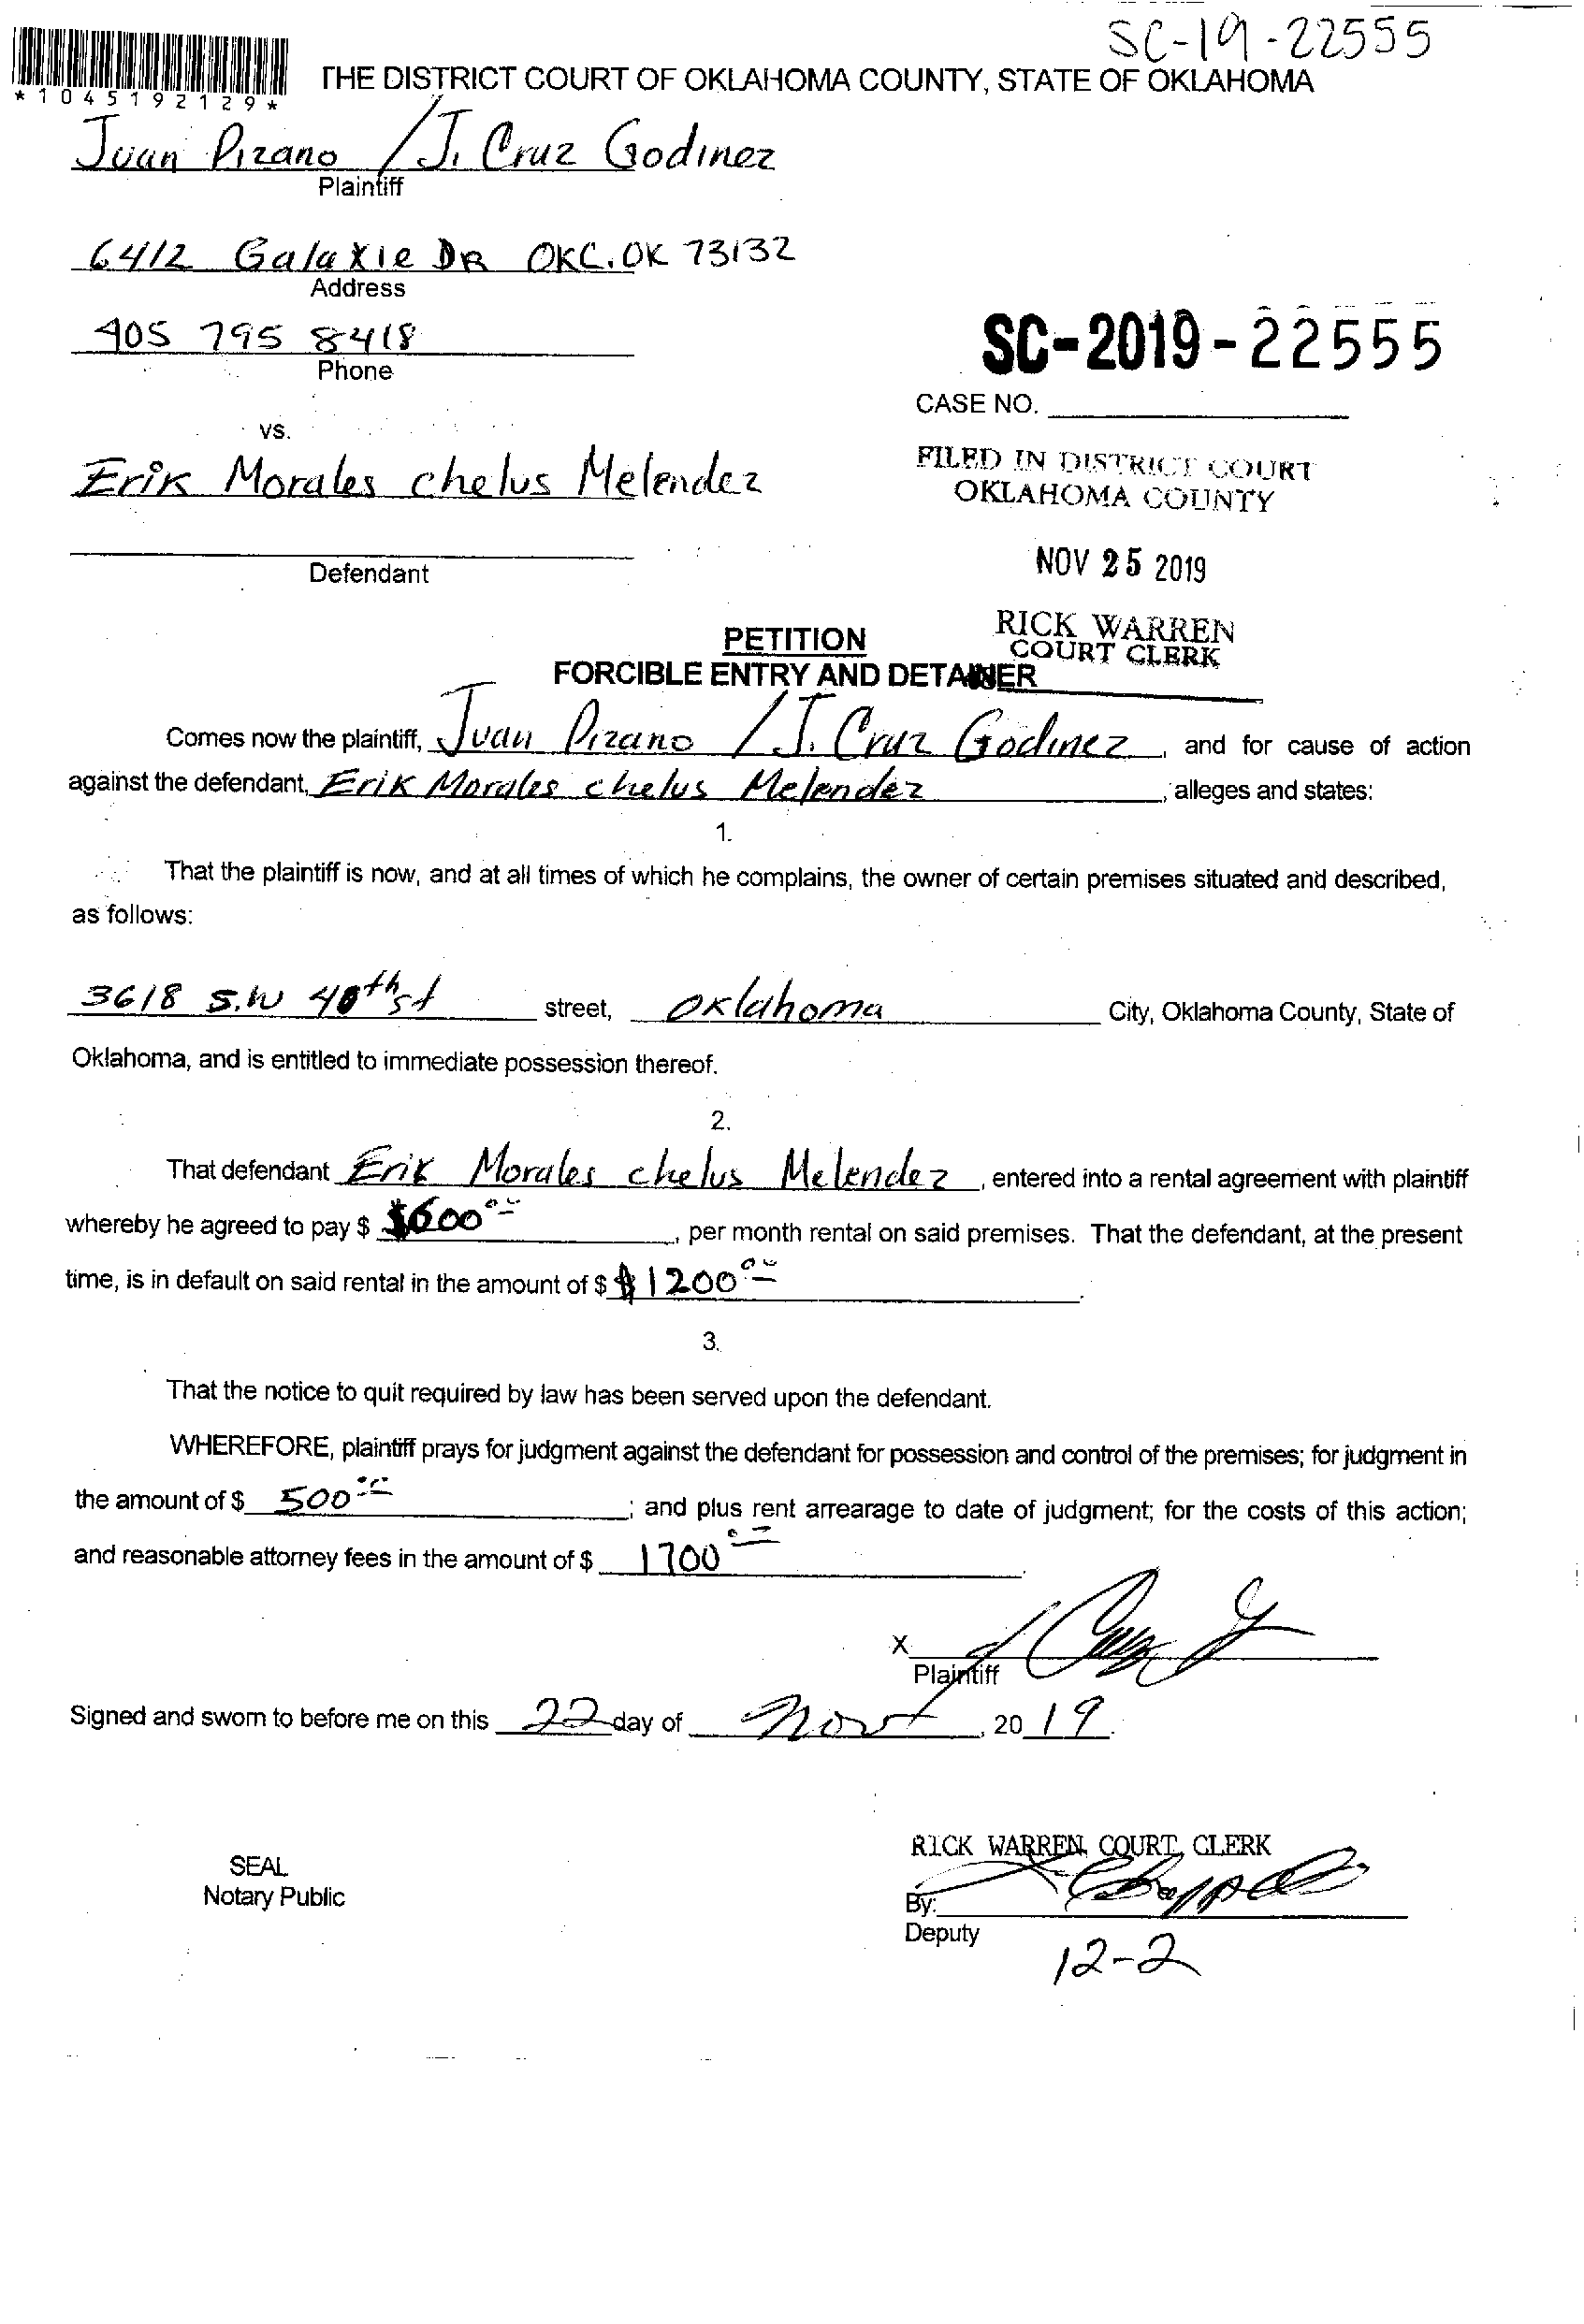 SC-19-22555
*1045192129*
THE DISTRICT COURT OF OKLAHOMA COUNTY, STATE OF OKLAHOMA
Juan Pizano / J. Cruz Godinez
Plaintiff
6412 Galaxie DR OKC. OK 73132
Address
405 795 8418
Phone
SC-2019-22555
CASE NO.
vs.
Erik Morales chelus Melendez
FILED IN DISTRICT COURT
OKLAHOMA COUNTY
Defendant
NOV 25 2019
RICK WARREN
COURT CLERK
PETITION
FORCIBLE ENTRY AND DETAINER
Comes now the plaintiff, Juan Pizano / J. Cruz Godinez, and for cause of action
against the defendant, Erik Morales chelus Melendez, alleges and states:
1.
That the plaintiff is now, and at all times of which he complains, the owner of certain premises situated and described,
as follows:
3618 S.W 40th st street, Oklahoma City, Oklahoma County, State of
Oklahoma, and is entitled to immediate possession thereof.
2.
That defendant Erik Morales chelus Melendez, entered into a rental agreement with plaintiff
whereby he agreed to pay $ $600.00, per month rental on said premises. That the defendant, at the present
time, is in default on said rental in the amount of $ $1200.00.
3.
That the notice to quit required by law has been served upon the defendant.
WHEREFORE, plaintiff prays for judgment against the defendant for possession and control of the premises; for judgment in
the amount of $ 500.00; and plus rent arrearage to date of judgment; for the costs of this action;
and reasonable attorney fees in the amount of $ 1700.00.
X
Plaintiff
Signed and sworn to before me on this 22 day of Nov, 2019.
RICK WARREN, COURT CLERK
SEAL
Notary Public
By:
Deputy
12-2